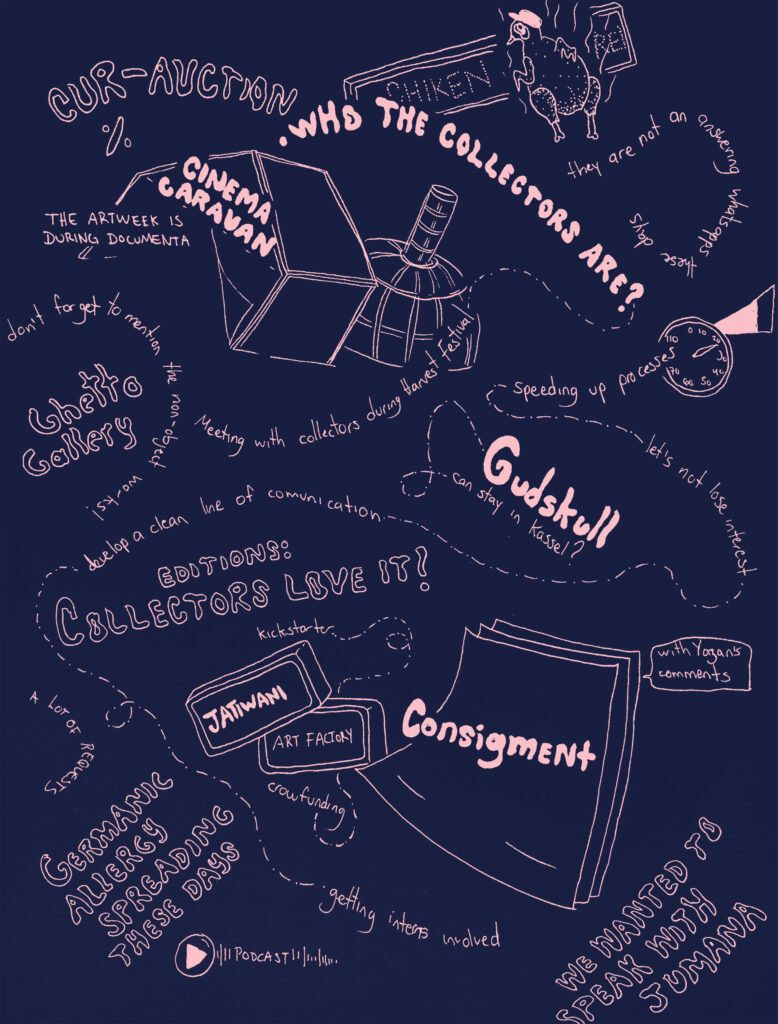 CUR-AUCTION
%
CHIKEN
RE!
.WHO THE COLLECTORS ARE?
they are not an answering whatsapps these days
CINEMA
CARAVAN
THE ARTWEEK IS
DURING DOCUMENTA
don't forget to mention the non-object works!
Ghetto
Gallery
Meeting with collectors during Harvest Festival
speeding up processes
110 0 10 20 30 40 50 66 70
let's not lose interest
Gudskull
can stay in Kassel?
develop a clean line of comunication
EDITIONS:
COLLECTORS LOVE IT!
kickstarter
with Yogan's
comments
JATIWANI
ART FACTORY
Consigment
A LOT OF REQUESTS
crowfunding
GERMANIC
ALLERGY
SPREADING
THESE DAYS
getting interns involved
PODCAST
WE WANTED TO
SPEAK WITH
JUMANA